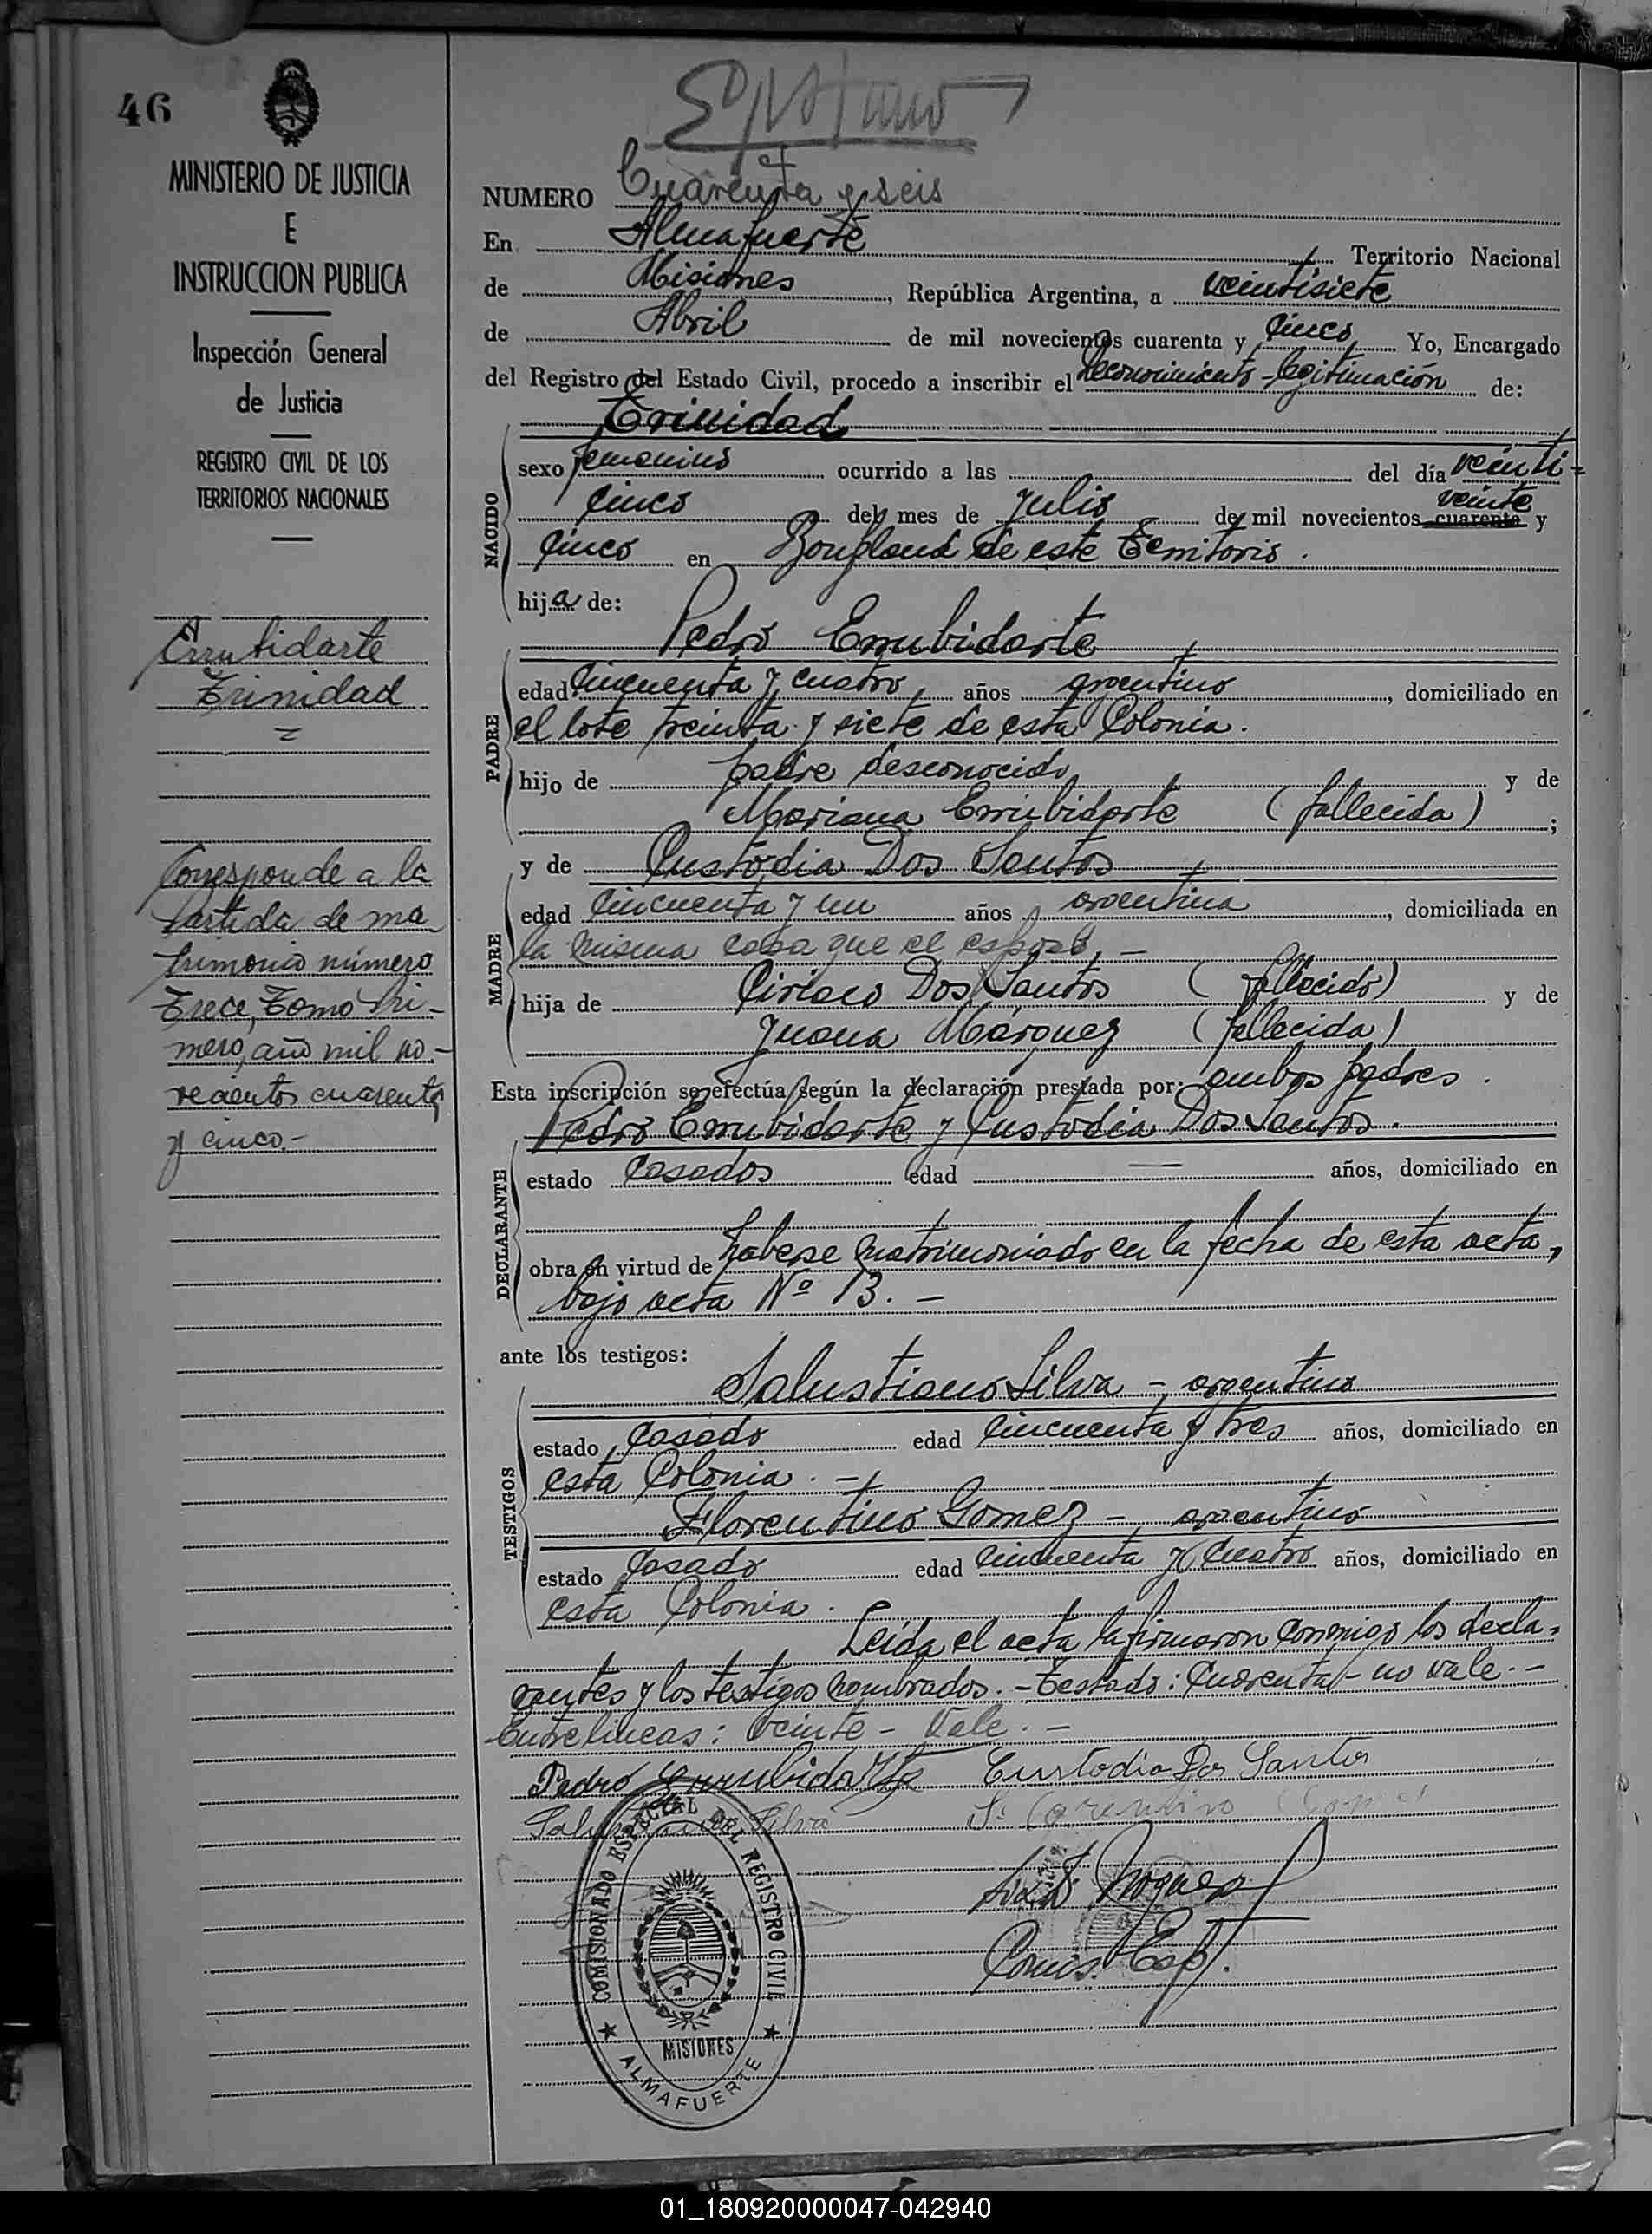 46
MINISTERIO DE JUSTICIA
E
INSTRUCCION PUBLICA
Inspección General
de Justicia
REGISTRO CIVIL DE LOS
TERRITORIOS NACIONALES
Errubidarte
Trinidad
Corresponde a la
Partida de ma
trimonio número
Trece, Tomo Pri-
mero, año mil no-
vecientos cuarenta
y cinco.-
NUMERO Cuarenta y seis
En Almafuerte Territorio Nacional
de Misiones, República Argentina, a veintisiete
de Abril de mil novecientos cuarenta y cinco Yo, Encargado
del Registro del Estado Civil, procedo a inscribir el Reconocimiento-Legitimación de:
Trinidad
NACIDO
sexo femenino ocurrido a las del día veinti-
cinco del mes de Julio de mil novecientos cuarenta veinte y
cinco en Bonpland de este Territorio.
hija de:
Pedro Errubidarte
PADRE
edad cincuenta y cuatro, años argentino, domiciliado en
el lote treinta y siete de esta Colonia.
hijo de padre desconocido y de
Mariana Errubidarte (fallecida);
y de Custodia Dos Santos
MADRE
edad cincuenta y un años argentina, domiciliada en
la misma casa que el esposo, -
hija de Ciriaco Dos Santos (fallecido) y de
Juana Márquez (fallecida)
Esta inscripción se efectúa según la declaración prestada por: ambos padres.
Pedro Errubidarte y Custodia Dos Santos.
DECLARANTE
estado Casados edad — años, domiciliado en
obra en virtud de haberse matrimoniado en la fecha de esta acta,
bajo acta Nº 13. -
ante los testigos:
Salustiano Silva - argentino
TESTIGOS
estado Casado edad cincuenta y tres años, domiciliado en
esta Colonia. -
Florentino Gomez - argentino
estado Casado edad cincuenta y cuatro años, domiciliado en
esta Colonia.
Leída el acta la firmaron conmigo los decla-
rantes y los testigos nombrados. - Testado: Cuarenta - no vale. -
Entrelineas: veinte - Vale. -
Pedro Errubidarte Custodia Dos Santos
Salustiano Silva Florentino Gomez
Comis. Esp.
COMISIONADO ESPECIAL DEL REGISTRO CIVIL
MISIONES
ALMAFUERTE
01_180920000047-042940